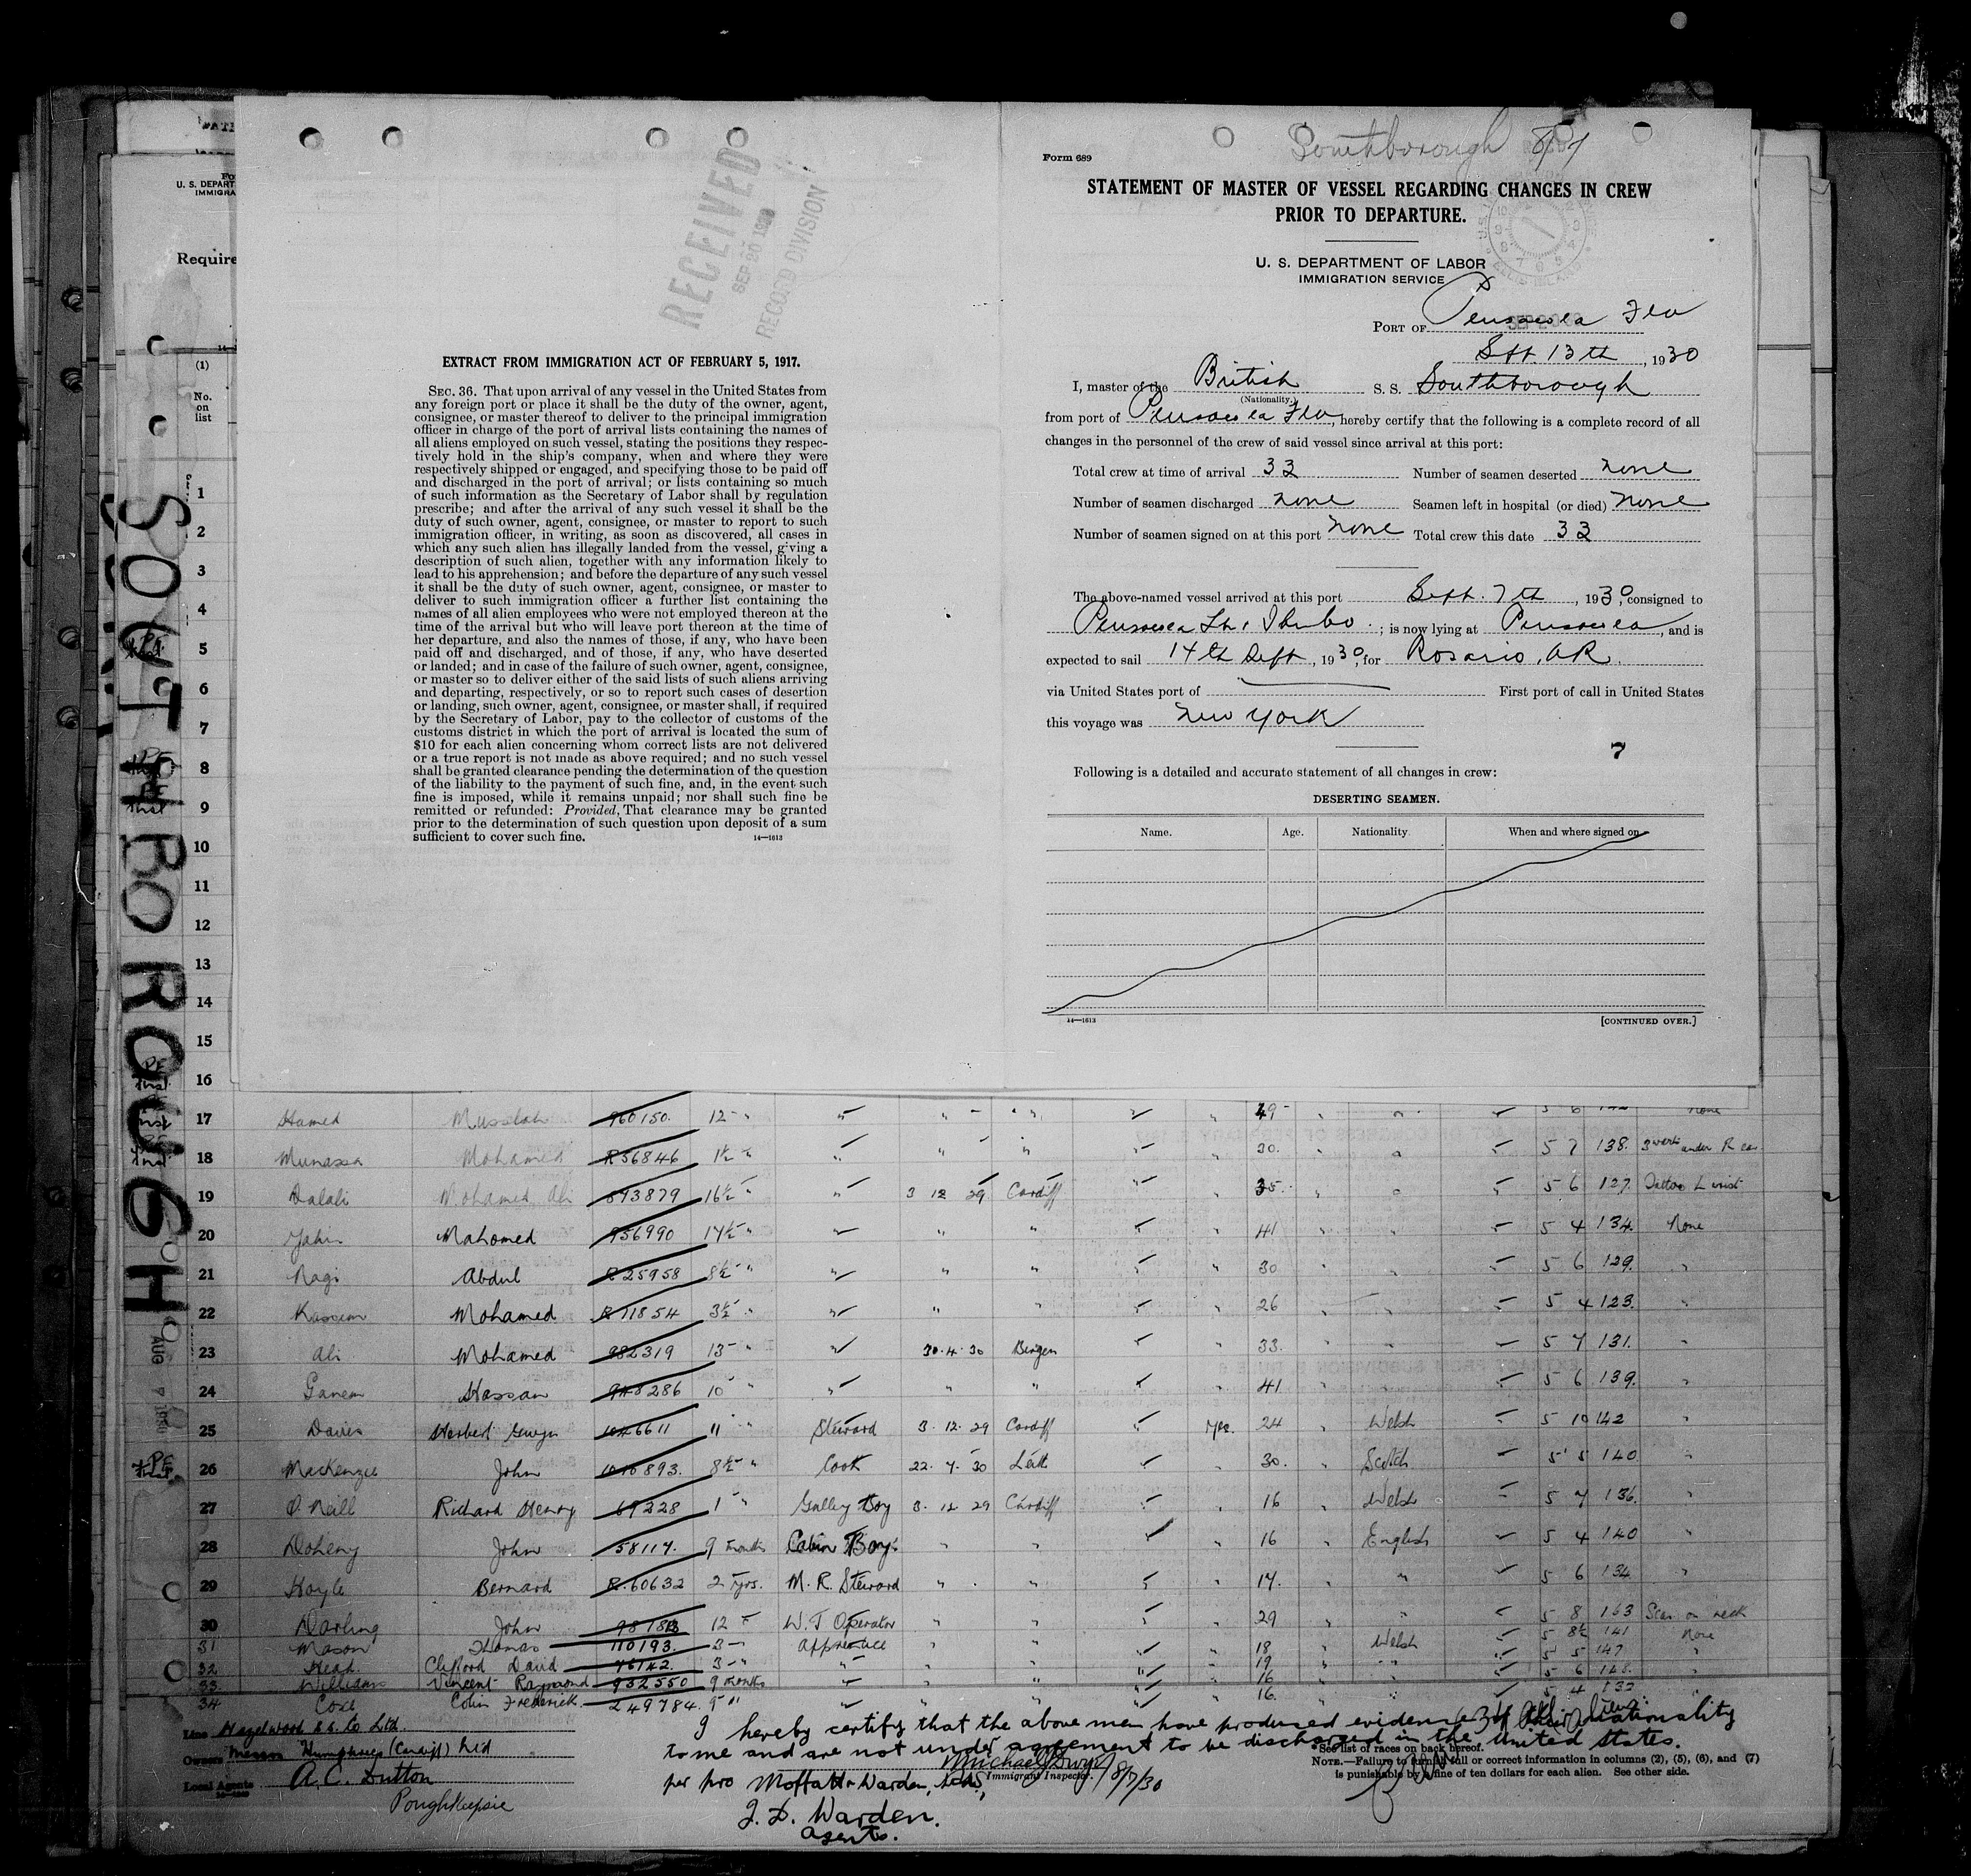 RECEIVED
SEP 20 1930
RECORD DIVISION
EXTRACT FROM IMMIGRATION ACT OF FEBRUARY 5, 1917.
SEC. 36. That upon arrival of any vessel in the United States from
any foreign port or place it shall be the duty of the owner, agent,
consignee, or master thereof to deliver to the principal immigration
officer in charge of the port of arrival lists containing the names of
all aliens employed on such vessel, stating the positions they respec-
tively hold in the ship's company, when and where they were
respectively shipped or engaged, and specifying those to be paid off
and discharged in the port of arrival; or lists containing so much
of such information as the Secretary of Labor shall by regulation
prescribe; and after the arrival of any such vessel it shall be the
duty of such owner, agent, consignee, or master to report to such
immigration officer, in writing, as soon as discovered, all cases in
which any such alien has illegally landed from the vessel, giving a
description of such alien, together with any information likely to
lead to his apprehension; and before the departure of any such vessel
it shall be the duty of such owner, agent, consignee, or master to
deliver to such immigration officer a further list containing the
names of all alien employees who were not employed thereon at the
time of the arrival but who will leave port thereon at the time of
her departure, and also the names of those, if any, who have been
paid off and discharged, and of those, if any, who have deserted
or landed; and in case of the failure of such owner, agent, consignee,
or master so to deliver either of the said lists of such aliens arriving
and departing, respectively, or so to report such cases of desertion
or landing, such owner, agent, consignee, or master shall, if required
by the Secretary of Labor, pay to the collector of customs of the
customs district in which the port of arrival is located the sum of
$10 for each alien concerning whom correct lists are not delivered
or a true report is not made as above required; and no such vessel
shall be granted clearance pending the determination of the question
of the liability to the payment of such fine, and, in the event such
fine is imposed, while it remains unpaid; nor shall such fine be
remitted or refunded: Provided, That clearance may be granted
prior to the determination of such question upon deposit of a sum
sufficient to cover such fine.
14—1613
Southborough 8/7
Form 689
STATEMENT OF MASTER OF VESSEL REGARDING CHANGES IN CREW
PRIOR TO DEPARTURE.
U. S. DEPARTMENT OF LABOR
IMMIGRATION SERVICE
PORT OF Pensacola Fla
Sept. 13th, 1930
I, master of the British S. S. Southborough
(Nationality.)
from port of Pensacola Fla, hereby certify that the following is a complete record of all
changes in the personnel of the crew of said vessel since arrival at this port:
Total crew at time of arrival 33 Number of seamen deserted none
Number of seamen discharged none Seamen left in hospital (or died) none
Number of seamen signed on at this port none Total crew this date 33
The above-named vessel arrived at this port Sept. 7th, 1930, consigned to
Pensacola ; is now lying at Pensacola, and is
expected to sail 14th Sept, 1930, for Rosario, AR.
via United States port of First port of call in United States
this voyage was New York
7
Following is a detailed and accurate statement of all changes in crew:
DESERTING SEAMEN.
Name. Age. Nationality. When and where signed on
14—1613 [CONTINUED OVER.]
U. S. DEPART
IMMIGRA
Require
(1)
No.
on
list
SOUTHBOROUGH
1
2
3
4
5
6
7
8
9
10
11
12
13
14
15
16
17 Hamed Musslah 960150. 12 " 49 none
18 Munassa Mohamed R56846 1½ " 30. 5 7 138. 3 warts under R ear
19 Dalali Mohamed Ali 893879 16½ " 3 12 29 Cardiff 35. 5 6 127. Tattoo L wrist
20 Mahomed 956990 17½ " 41 5 4 134. None
21 Nagi Abdul R25958 8½ " 30 5 6 129. "
22 Kassem Mohamed R11854 3½ " 26 5 4 123. "
23 Ali Mohamed 982319 13 " 30.4.30 Bergen 33. 5 7 131. "
24 Ganem Hassan 948286 10 " 41 5 6 139. "
25 Davies Herbert Gwyn 1046611 11 " Steward 3.12.29 Cardiff yes. 24 " Welsh 5 10 142 "
26 Mackenzie John 1010893. 8½ " Cook 22.7.30 Leith 30. " Scotch 5 5 140 "
27 O'Neill Richard Henry 69228 1 " Galley Boy 3.12.29 Cardiff 16 " Welsh 5 7 136. "
28 Doheny John 58117. 9 months Cabin Boy. " " 16 " English 5 4 140 "
29 Hoyle Bernard R.60632 2 yrs. M. R. Steward " " 17. " " 5 6 134 "
30 Darling John 12 " W. T Operator " " 29 " " 5 8 163 Scar on neck
31 Mason Thomas 110193. 3 " Apprentice " " 18 " Welsh 5 8½ 141 None
32 Head. Clifford David 76142. 3 " 19 5 5 147 "
33. Williams Vincent Raymond 932550 9 months 16 5 6 148. "
34 Cox Colin Frederick. 249784. 9 " 16. 5 4 132
AUG 7 1930
Line Hazelwood S.S. Co Ltd.
Owners Messrs Humphries (Cardiff) Ltd
Local Agents A. C. Dutton
Poughkeepsie
I hereby certify that the above men have produced evidence of their nationality
to me and are not under agreement to be discharged in the United States.
Immigrant Inspector.
8/7/30
per pro Moffatt & Warden, Ltd,
J. D. Warden.
Agents.
*See list of races on back hereof.
NOTE.—Failure to furnish full or correct information in columns (2), (5), (6), and (7)
is punishable by a fine of ten dollars for each alien. See other side.